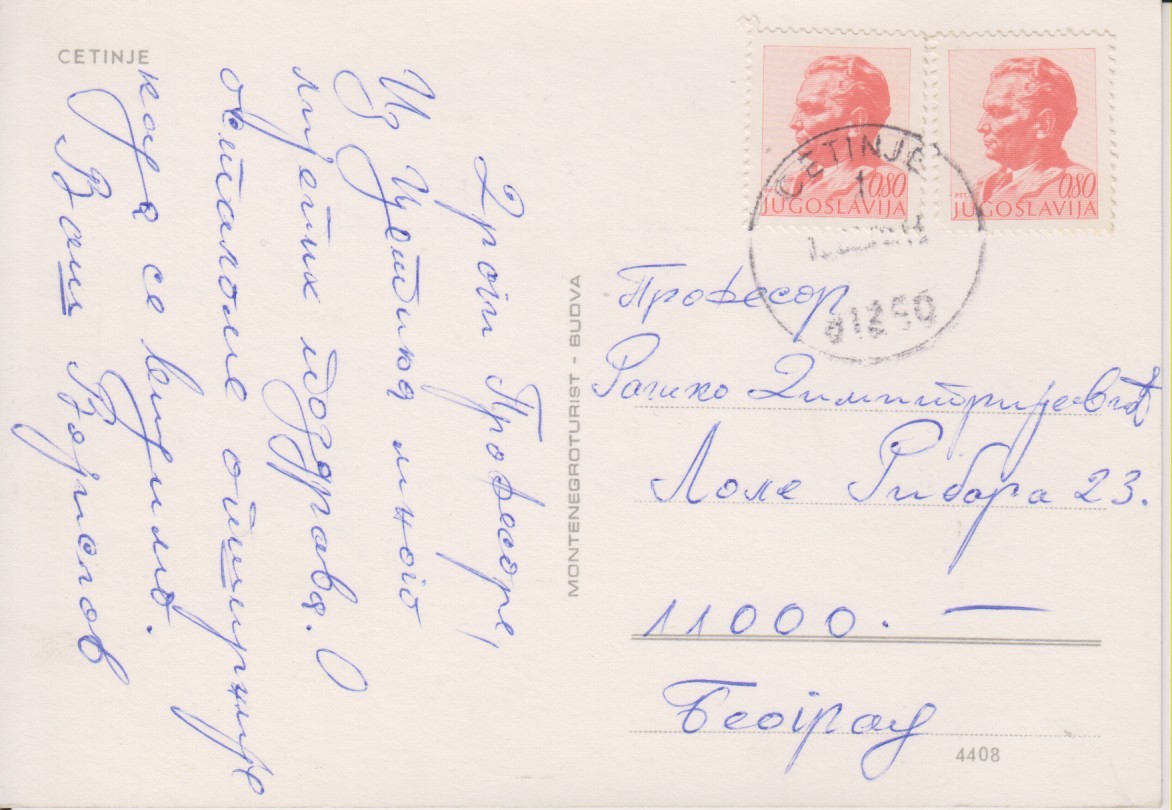 CETINJE
Драги Професоре,
Из Цетиња много
лијепих поздрава. О
осталоме опширније
кад се видимо.
Ваш
MONTENEGROTURIST - BUDVA
JUGOSLAVIJA 0.80
JUGOSLAVIJA 0.80
CETINJE
81250
Професор
Рашко Димитријевић
Лоле Рибара 23.
11000. —
Београд
4408